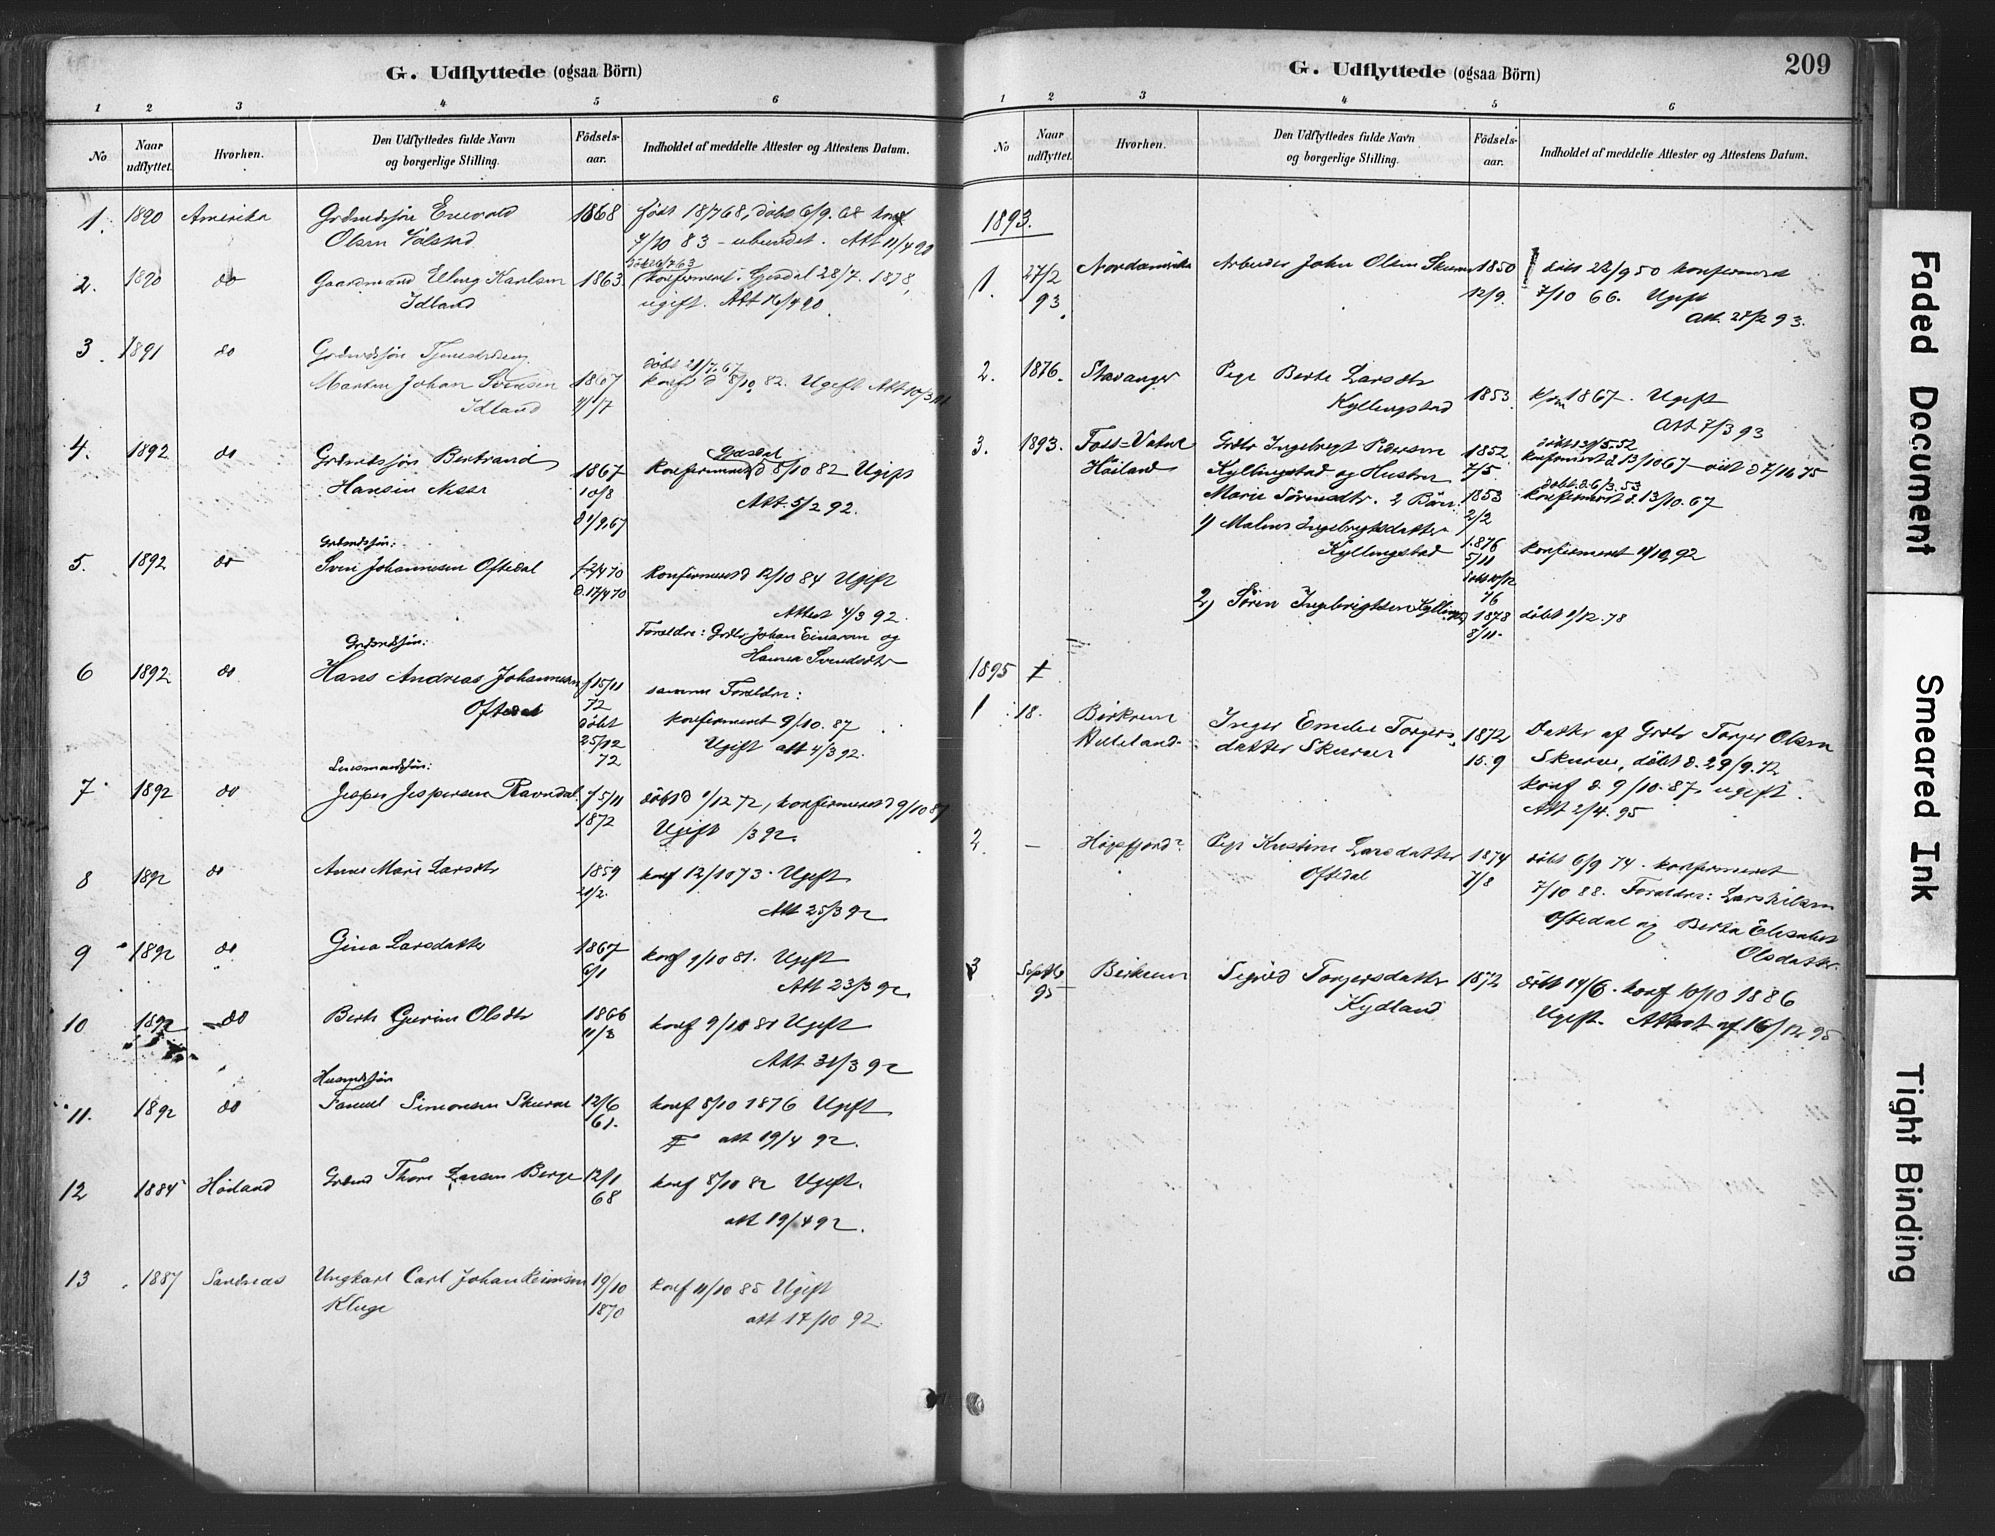 G. Udflyttede (ogsaa Börn)
1 2 3 4 5 6
No
Naar udflyttet.
Hvorhen.
Den Udflyttedes fulde Navn og borgerlige Stilling.
Födsels-aar.
Indholdet af meddelte Attester og Attestens Datum.
1. 1890 Amerika Grdmdsjøn Enevold 1868 født 18/7 68, døbt 6/9. 68 konf
Olsen 4/10 83 - ubundet. Att 11/4 90
2. 1890 do Gaardmand Elling Karlsen 1863 konfirmeret i Gjesdal 28/7. 1878,
Idland ugift. Att 16/4 90.
3. 1891 do Grdmdsjøn
døbt 21/7. 67
Marten Johan Svensen 1867 konf d 8/10. 82. Ugift Att 10/3
Idland
4. 1892 do Grdmdsjøn Bertrand Gjesdal
Hansen 1867 konfirmeret d 8/10 82 Ugift
10/8 Att. 5/2 92.
d 1/9. 67
Grdmdsjøn:
5. 1892 do Sven Johannesen Oftedal konfirmeret d 12/10 84 Ugift
d. 17/4 70
Attest 4/3 92.
Forældre: Grdbr Johan Einarsen og
Hanna Svendsdtr
Grdmdsjøn:
6 1892 do Hans Andreas Johannesen f 15/11 samme Forældre:
Oftedal 72
døbt konfirmeret 9/10. 87
25/12 Ugift att 4/3 92.
72
Lensmandsjøn:
7 1892 do Jesper Jespersen Ravndal f 5/11 døbt d 1/12 72, konfirmeret d 9/10 87
1872 Ugift /3 92.
8 1892 do Anne Marie Larsdtr 1859 konf 12/10 73. Ugift
21/2. Att 25/3 92
9 1892 do Gina Larsdatter 1867 konf 9/10 81. Ugift
6/1 Att 23/3 92
10 1892 do Berte Gurine Olsdtr 1866 konf 9/10 81 Ugift
11/3 Att 31/3 92
Husmdsjøn
11. 1892 do Samuel Simonsen Skurve 12/6 konf 8/10 1876 Ugift
61. att 19/4 92.
12 1884 Høiland Grdmd Thore Larsen Berge 12/1 konf 8/10 82 Ugift.
68 att 19/4 92.
13 1887 Sandnæs Ungkarl Carl Johan Reiersen 19/10 konf 11/10 85 Ugift
Kluge 1870 att 17/10 92.
G. Udflyttede (ogsaa Börn) 209
1 2 3 4 5 6
No
Naar udflyttet.
Hvorhen.
Den Udflyttedes fulde Navn og borgerlige Stilling.
Födsels-aar.
Indholdet af meddelte Attester og Attestens Datum.
1893.
1. 27/2 Nordamerika Arbeider John Olsen Skurve 1850 døbt 22/9 50 konfirmeret
93. 12/9. 7/10 66. Ugift
Att. 27/2 93.
2. 1876. Stavanger Pige Berte Larsdtr
Kyllingstad 1853. konf 1867. Ugift
Att 7/3 93
3. 1893. Foss-Vatne Grdbr Ingebregt Pedersen 1852 døbt 29/5. 52
Høiland Kyllingstad og Hustru 7/5 konfirmeret d 13/10 67
Marie Sørensdtr. 2 Børn: 1853 døbt d. 6/3. 53
2/2 konfirmeret d. 13/10. 67
1) Malene Ingebregtsdatter
Kyllingstad 1876 konfirmeret 9/10, 92
5/11
døbt 10/12
76
2) Søren Ingebrigtsen Kyllingstad 1878 døbt 1/12. 78
8/11.
1895
1 18. Birkrem Inger Emelie Torgers- 1872 Datter af Grdbr Torger Olsen
datter Skurve 15.9 Skurve, døbt d. 29/9. 72
konf d. 9/10. 87. ugift.
Att 2/4. 95
2. — Høgsfjord Pige Kristine Larsdatter 1874 døbt 6/9 74. konfirmeret
Oftedal 7/8 7/10 88. Forældre: Lars Nilsen
Oftedal og Berta Elisabet
Olsdatter.
3 Septb Birkrem Sigrid Torgersdatter 1872 døbt 14/6. konf 10/10 1886
95 Kydland Ugift. Attest af 16/12 95
Faded Document
Smeared Ink
Tight Binding